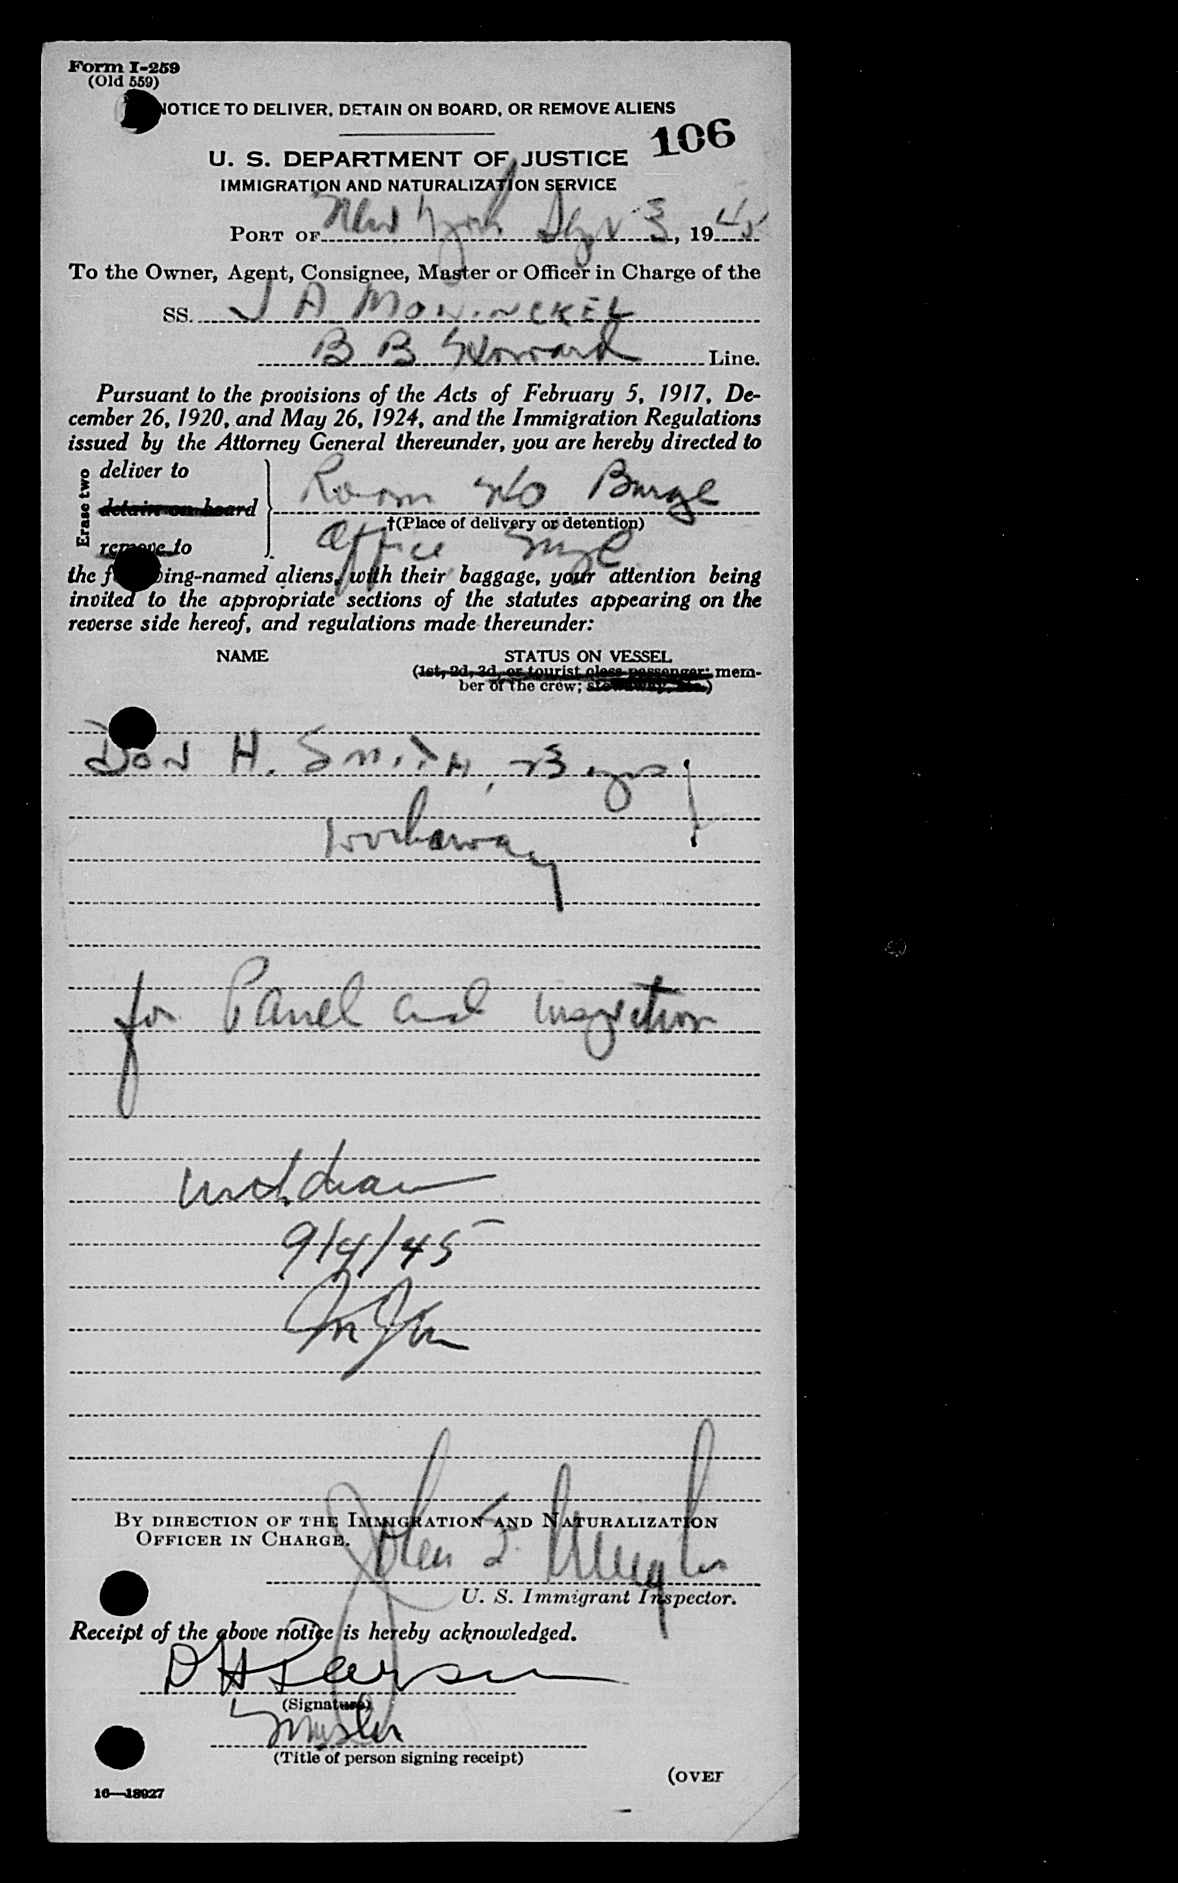 Form I-259
(Old 559)
NOTICE TO DELIVER, DETAIN ON BOARD, OR REMOVE ALIENS
106
U. S. DEPARTMENT OF JUSTICE
IMMIGRATION AND NATURALIZATION SERVICE
PORT OF New York Sept 3, 1945
To the Owner, Agent, Consignee, Master or Officer in Charge of the
SS. J A MOWINCKEL
B B Howard Line.
Pursuant to the provisions of the Acts of February 5, 1917, De-
cember 26, 1920, and May 26, 1924, and the Immigration Regulations
issued by the Attorney General thereunder, you are hereby directed to
Erase two
deliver to
detain on board
remove to
Room Barge
†(Place of delivery or detention)
Office
the following-named aliens, with their baggage, your attention being
invited to the appropriate sections of the statutes appearing on the
reverse side hereof, and regulations made thereunder:
NAME STATUS ON VESSEL
(1st, 2d, 3d, or tourist class passenger; mem-
ber of the crew; stowaway, etc.)
DON H. SMITH, 23 yrs
workaway
for Panel and inspection
withdrawn
9/4/45
BY DIRECTION OF THE IMMIGRATION AND NATURALIZATION
OFFICER IN CHARGE.
John
U. S. Immigrant Inspector.
Receipt of the above notice is hereby acknowledged.
D H Pearson
(Signature)
Master
(Title of person signing receipt)
(OVER
16—18927